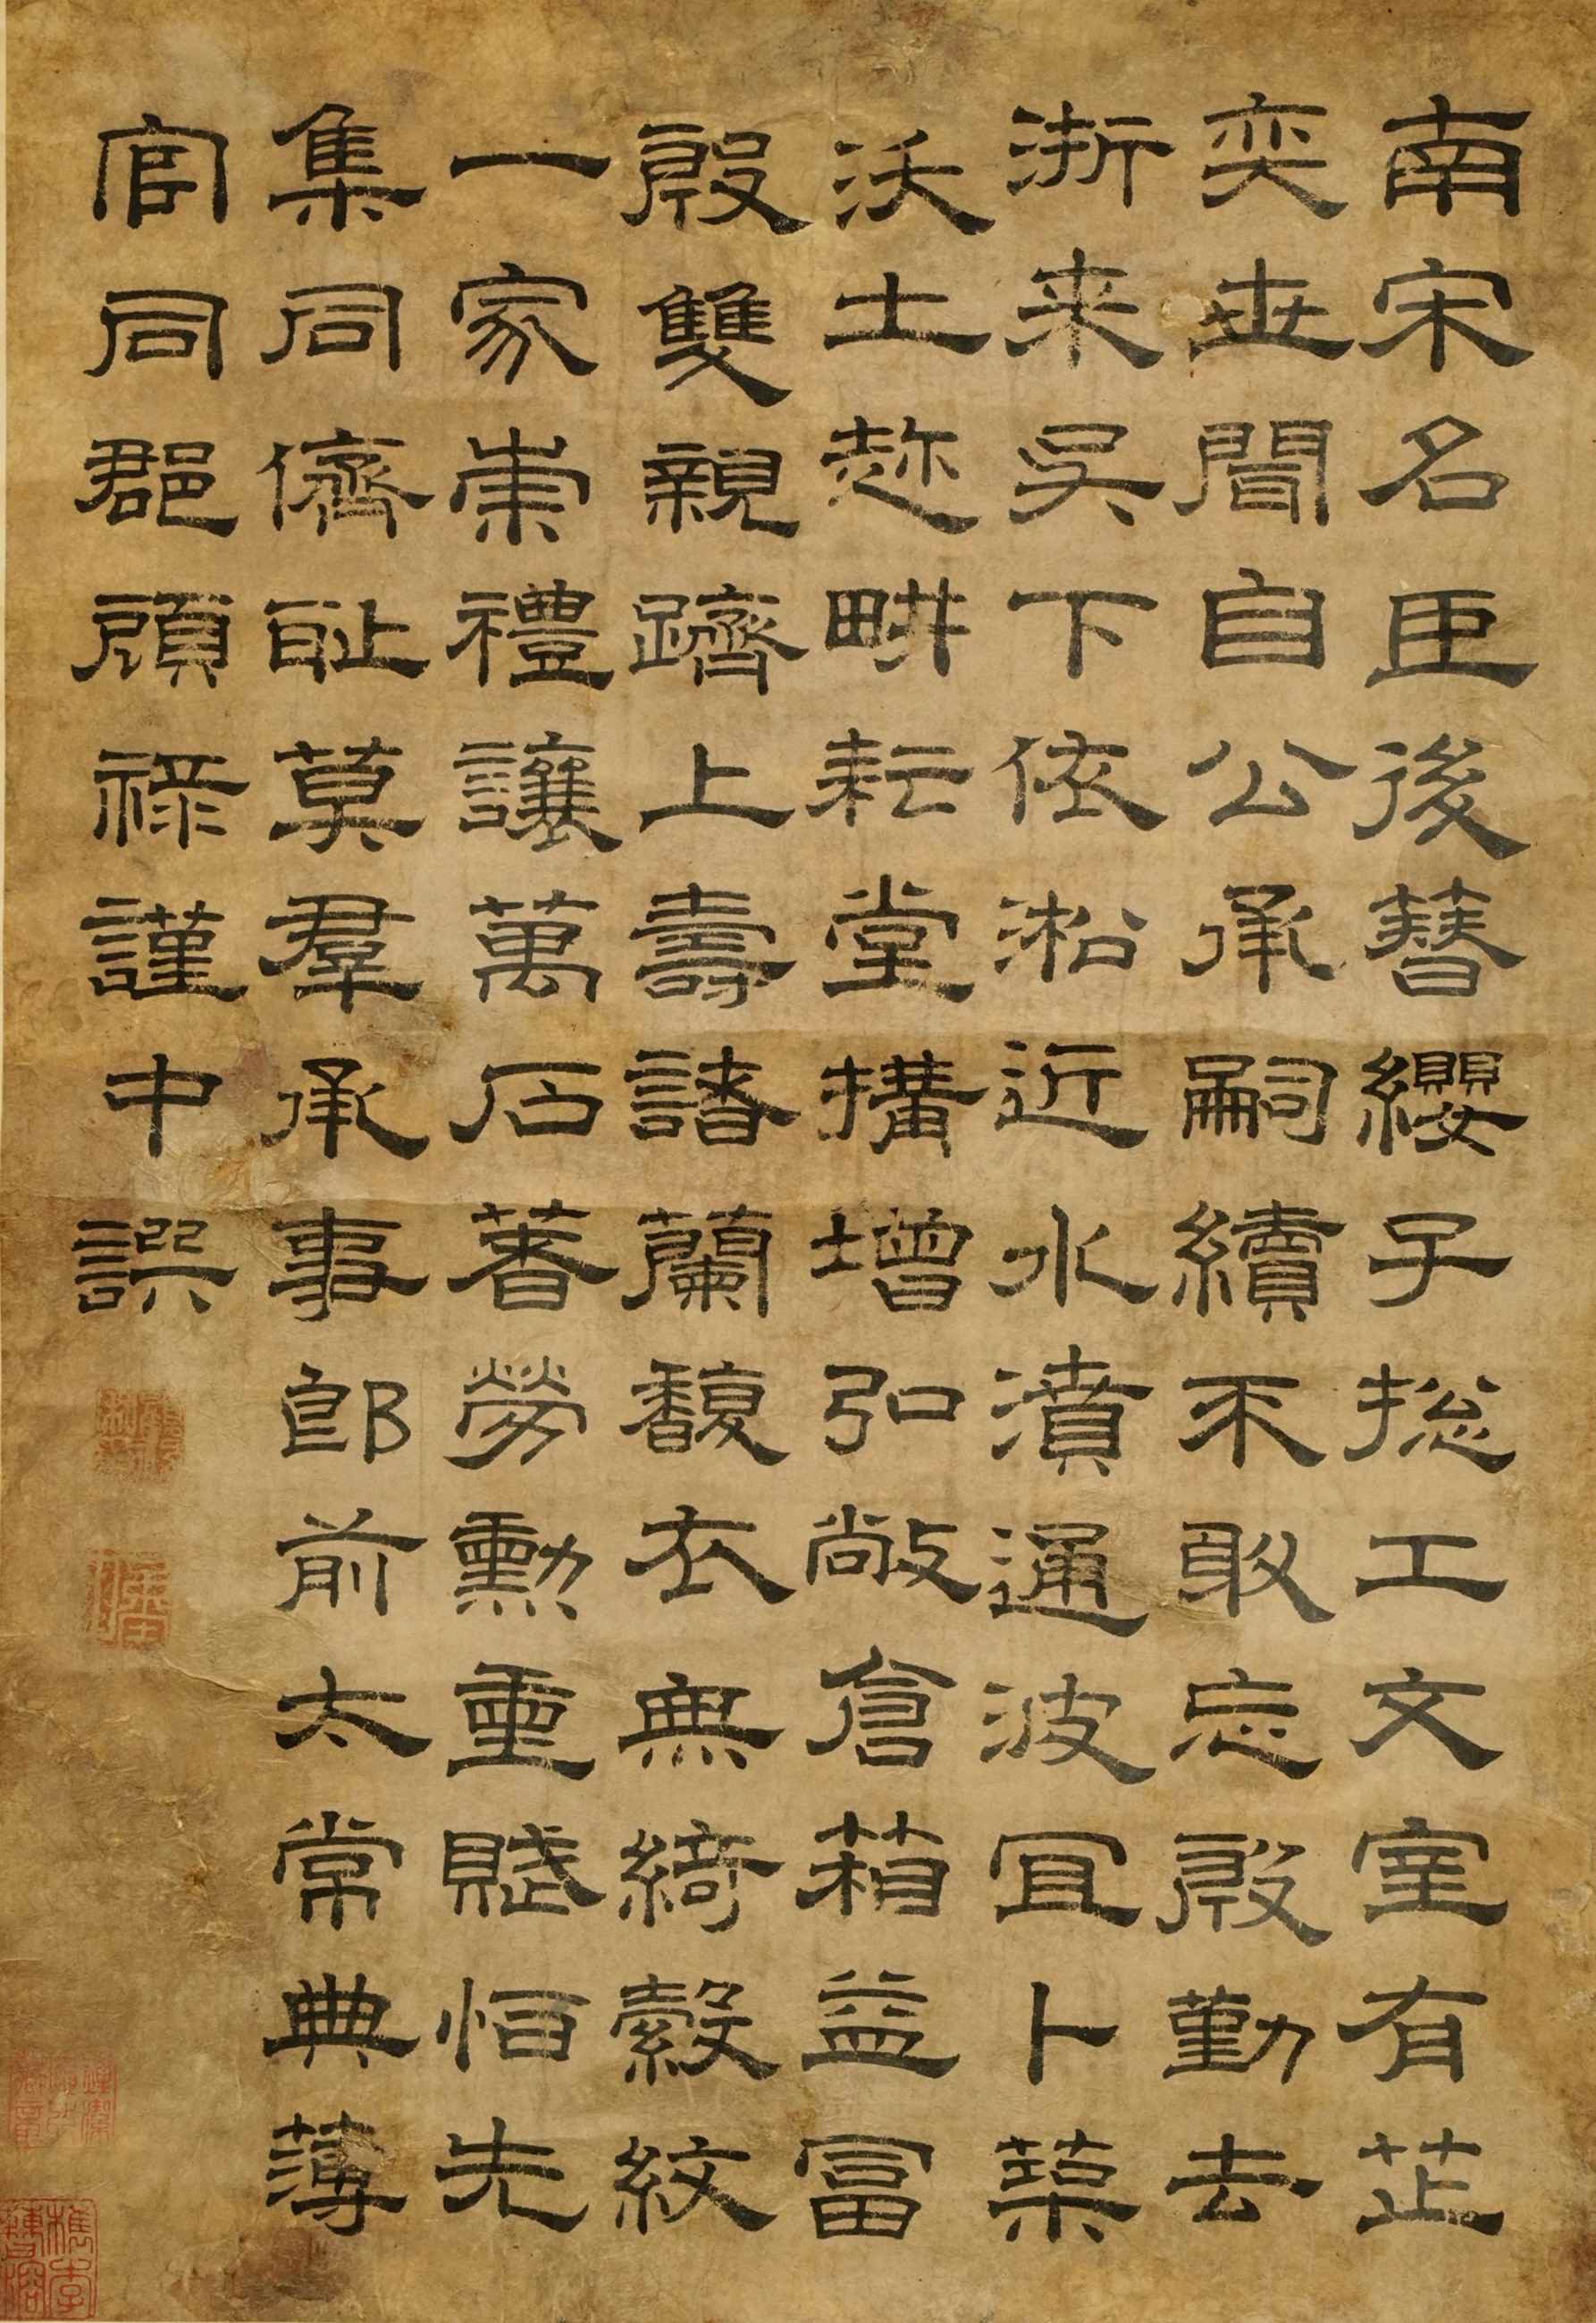 南宋名臣後簪纓子捴工文室有芷
奕世聞自公承嗣續不敢忘殷勤去
浙来吳下依淞近水濆通波宜卜築
沃土趂畊耘堂搆增弘敞倉箱益富
殷雙親躋上壽諸蘭馥衣無綺縠紋
一家崇禮讓萬石著勞勳重賦恒先
集同儕耻莫羣承事郎前太常典薄
官同郡頋祿謹中譔